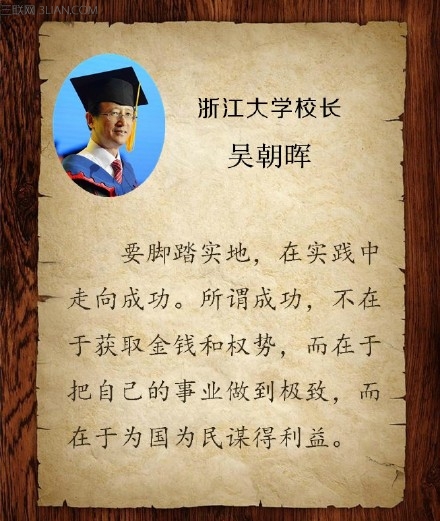 三联网 3LIAN.COM
浙江大学校长
吴朝晖
要脚踏实地，在实践中
走向成功。所谓成功，不在
于获取金钱和权势，而在于
把自己的事业做到极致，而
在于为国为民谋得利益。